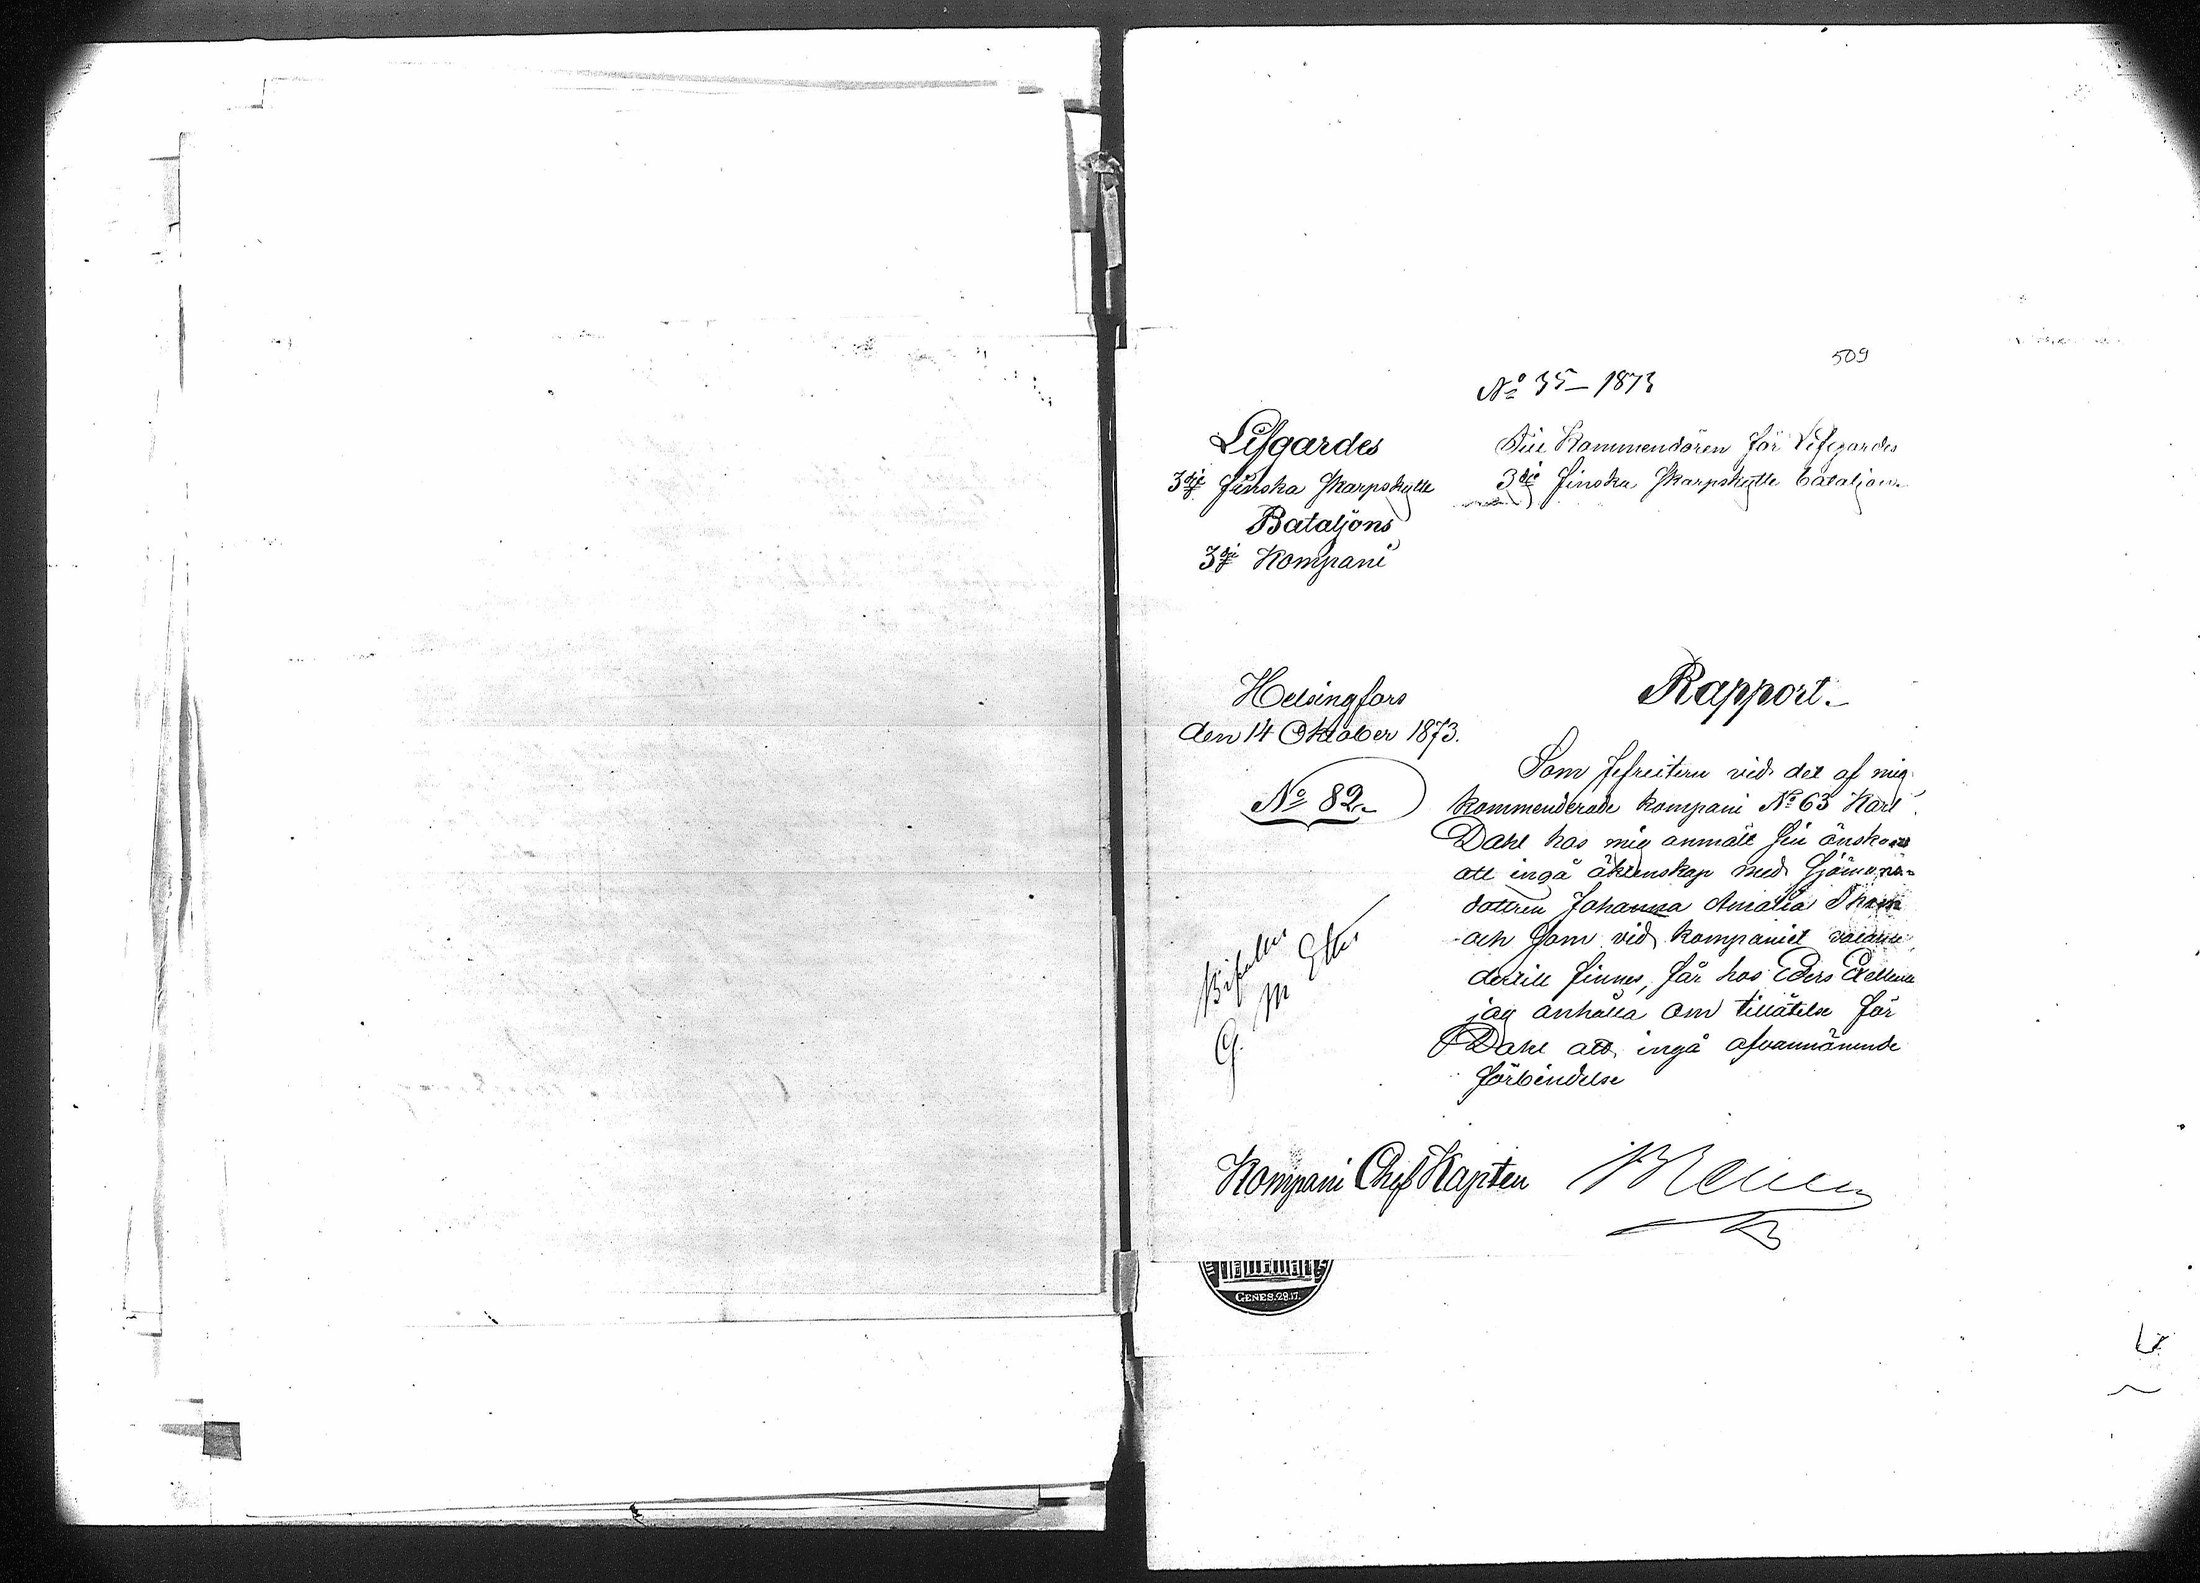 509
No 35 – 1873
Lifgardes
3dje finska skarpskytte
Bataljons
3dje Kompani
Till Kommendören för Lifgardes
3dje finska skarpskytte bataljon.
Helsingfors
den 14 Oktober 1873.
No 82.
Rapport.
Som gefreitern vid det af mig
kommenderade kompani No 63 Karl
Dahl hos mig anmält sin önskan
att ingå äktenskap med sjömans-
dottren Johanna Amalia
och som vid kompaniet vacans
dertill finnes, får hos Eders Excellens
jag anhålla om tillåtelse för
Dahl att ingå ofvannämnde
förbindelse
Bifalles
G. M
Kompani Chef Kapten
GENES.28.17.